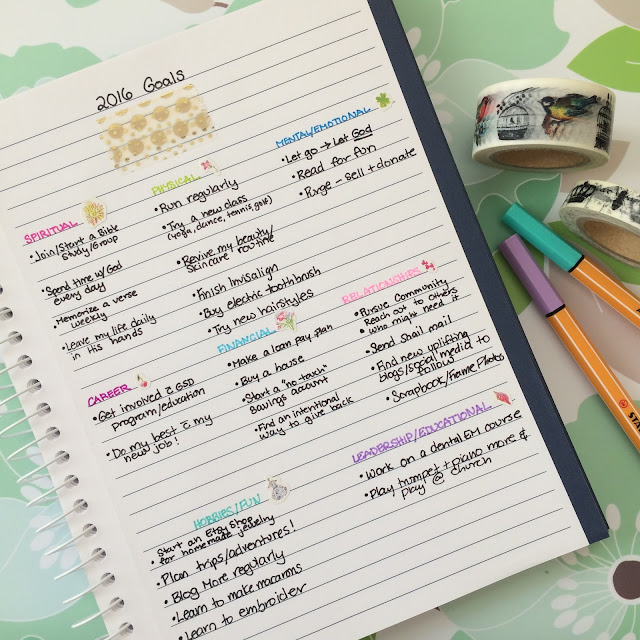 2016 Goals
SPIRITUAL
• Join/Start a Bible
Study/Group
• Spend time w/God
every day
• Memorize a verse
weekly
• Leave my life daily
in His hands
PHYSICAL
• Run regularly
• Try a new class
(yoga, dance, tennis, golf)
• Revive my beauty/
Skincare routine
• Finish Invisalign
• Buy electric toothbrush
• Try new hairstyles
MENTAL/EMOTIONAL
• Let go → Let God
• Read for fun
• Purge - sell + donate
CAREER
• Get involved c̄ GSD
program/education
• Do my best c̄ my
new job!
FINANCIAL
• Make a loan pay plan
• Buy a house
• Start a "no touch"
Savings account
• Find an intentional
way to give back
RELATIONSHIPS
• Pursue Community
• Reach out to others
who might need it
• Send Snail mail
• Find new uplifting
blogs/social media to
follow
• Scrapbook/Frame Photos
HOBBIES/FUN
• Start an Etsy Shop
for homemade jewelry
• Plan trips/adventures!
• Blog More regularly
• Learn to make macarons
• Learn to embroider
LEADERSHIP/EDUCATIONAL
• Work on a dental EM course
• Play trumpet + piano more &
play @ church